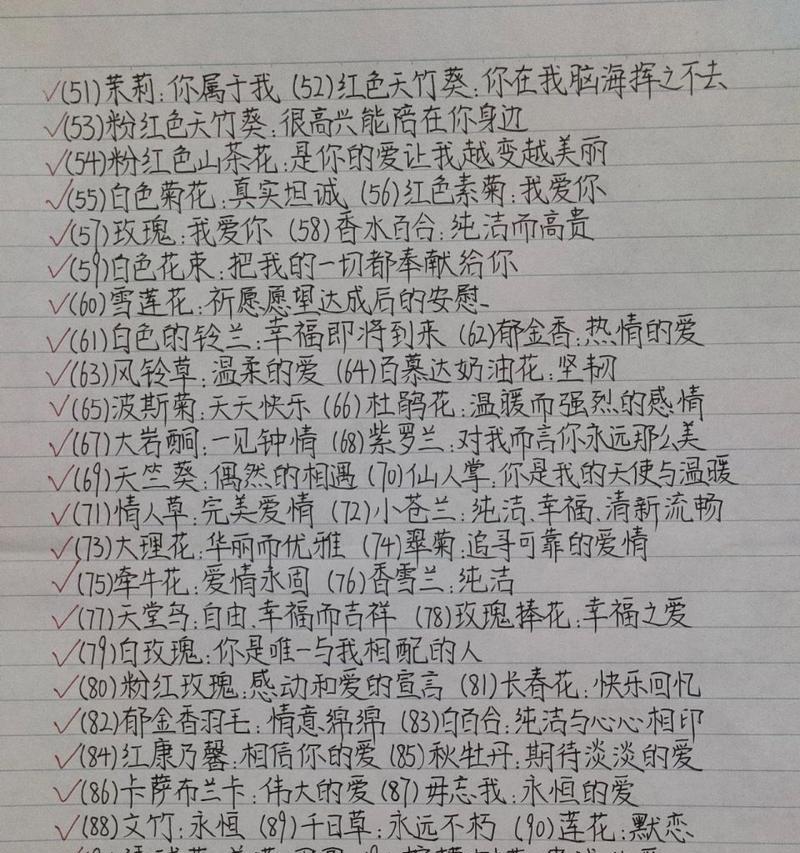 ✓(51)茉莉:你属于我 (52)红色天竹葵:你在我脑海挥之不去
✓(53)粉红色天竹葵:很高兴能陪在你身边
✓(54)粉红色山茶花:是你的爱让我越变越美丽
✓(55)白色菊花:真实坦诚 (56)红色素菊:我爱你
✓(57)玫瑰:我爱你 (58)香水百合:纯洁而高贵
✓(59)白色花束:把我的一切都奉献给你
✓(60)雪莲花:祈愿愿望达成后的安慰
✓(61)白色的铃兰:幸福即将到来 (62)郁金香:热情的爱
✓(63)风铃草:温柔的爱 (64)百慕达奶油花:坚韧
✓(65)波斯菊:天天快乐 (66)杜鹃花:温暖而强烈的感情
✓(67)大岩酮:一见钟情 (68)紫罗兰:对我而言你永远那么美
✓(69)天竺葵:偶然的相遇 (70)仙人掌:你是我的天使与温暖
✓(71)情人草:完美爱情 (72)小苍兰:纯洁、幸福、清新流畅
✓(73)大理花:华丽而优雅 (74)翠菊:追寻可靠的爱情
✓(75)牵牛花:爱情永固 (76)香雪兰:纯洁
✓(77)天堂鸟:自由、幸福而吉祥 (78)玫瑰捧花:幸福之爱
✓(79)白玫瑰:你是唯一与我相配的人
✓(80)粉红玫瑰:感动和爱的宣言 (81)长春花:快乐回忆
✓(82)郁金香羽毛:情意绵绵 (83)白百合:纯洁与心心相印
✓(84)红康乃馨:相信你的爱 (85)秋牡丹:期待淡淡的爱
✓(86)卡萨布兰卡:伟大的爱 (87)毋忘我:永恒的爱
✓(88)文竹:永恒 (89)千日草:永远不朽 (90)莲花:默恋